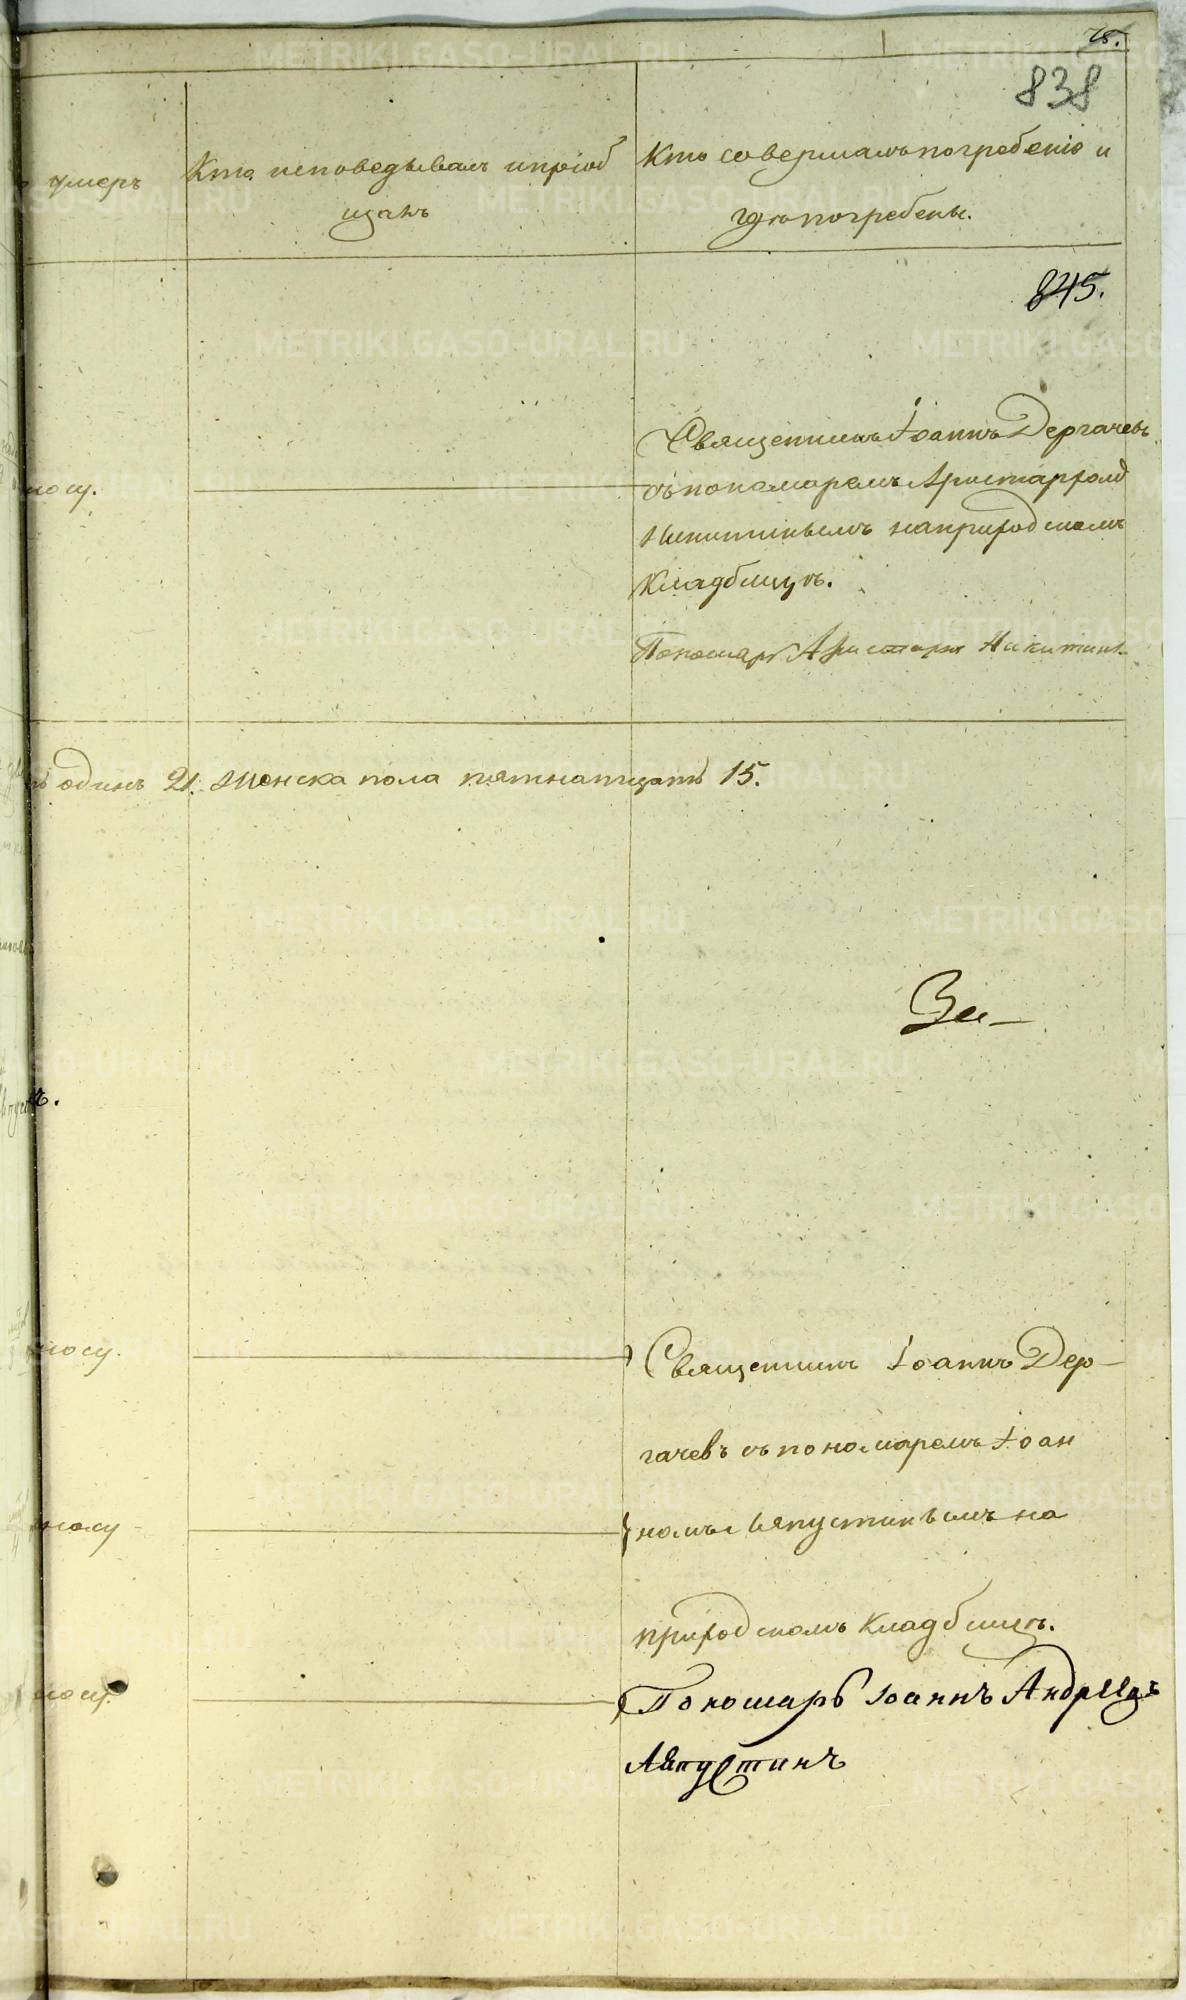 75.
838
умеръ
Кто исповедывалъ и пріоб
щалъ
Кто совершалъ погребеніе и
где погребены.
845.
Священникъ Іоаннъ Дергачевъ
съ пономаремъ Аристархомъ
Никитинымъ на приходскомъ
кладбищѣ.
носу.
Пономарь Аристархъ Никитинъ
одинъ 21. женска пола пятнатцать 15.
METRIKI.GASO-URAL.RU
носу.
Священникъ Іоаннъ Дер–
гачевъ съ пономаремъ Іоан
номъ Ляпустинымъ на
носу
приходскомъ кладбищѣ.
носу
Пономарь Іоаннъ Андреевъ
Ляпустинъ